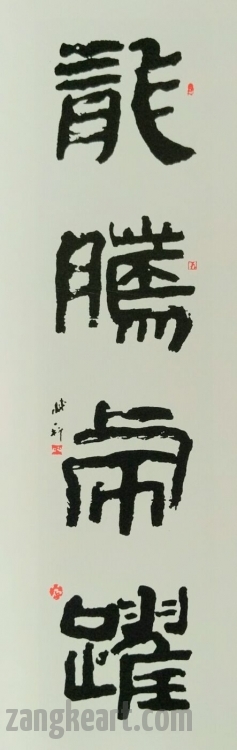 龍騰虎躍
zangkeart.com